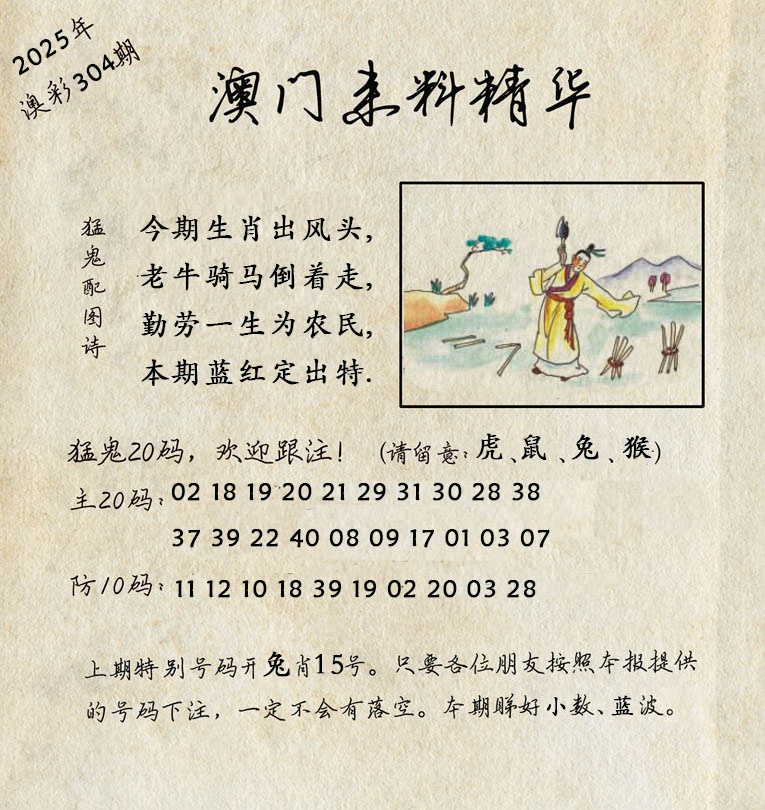 2025年
澳彩304期
澳门来料精华
猛鬼配图诗
今期生肖出风头,
老牛骑马倒着走,
勤劳一生为农民,
本期蓝红定出特.
猛鬼20码，欢迎跟注！（请留意：虎、鼠、兔、猴）
主20码：02 18 19 20 21 29 31 30 28 38
37 39 22 40 08 09 17 01 03 07
防10码：11 12 10 18 39 19 02 20 03 28
上期特别号码开兔肖15号。只要各位朋友按照本报提供
的号码下注，一定不会有落空。本期睇好小数、蓝波。